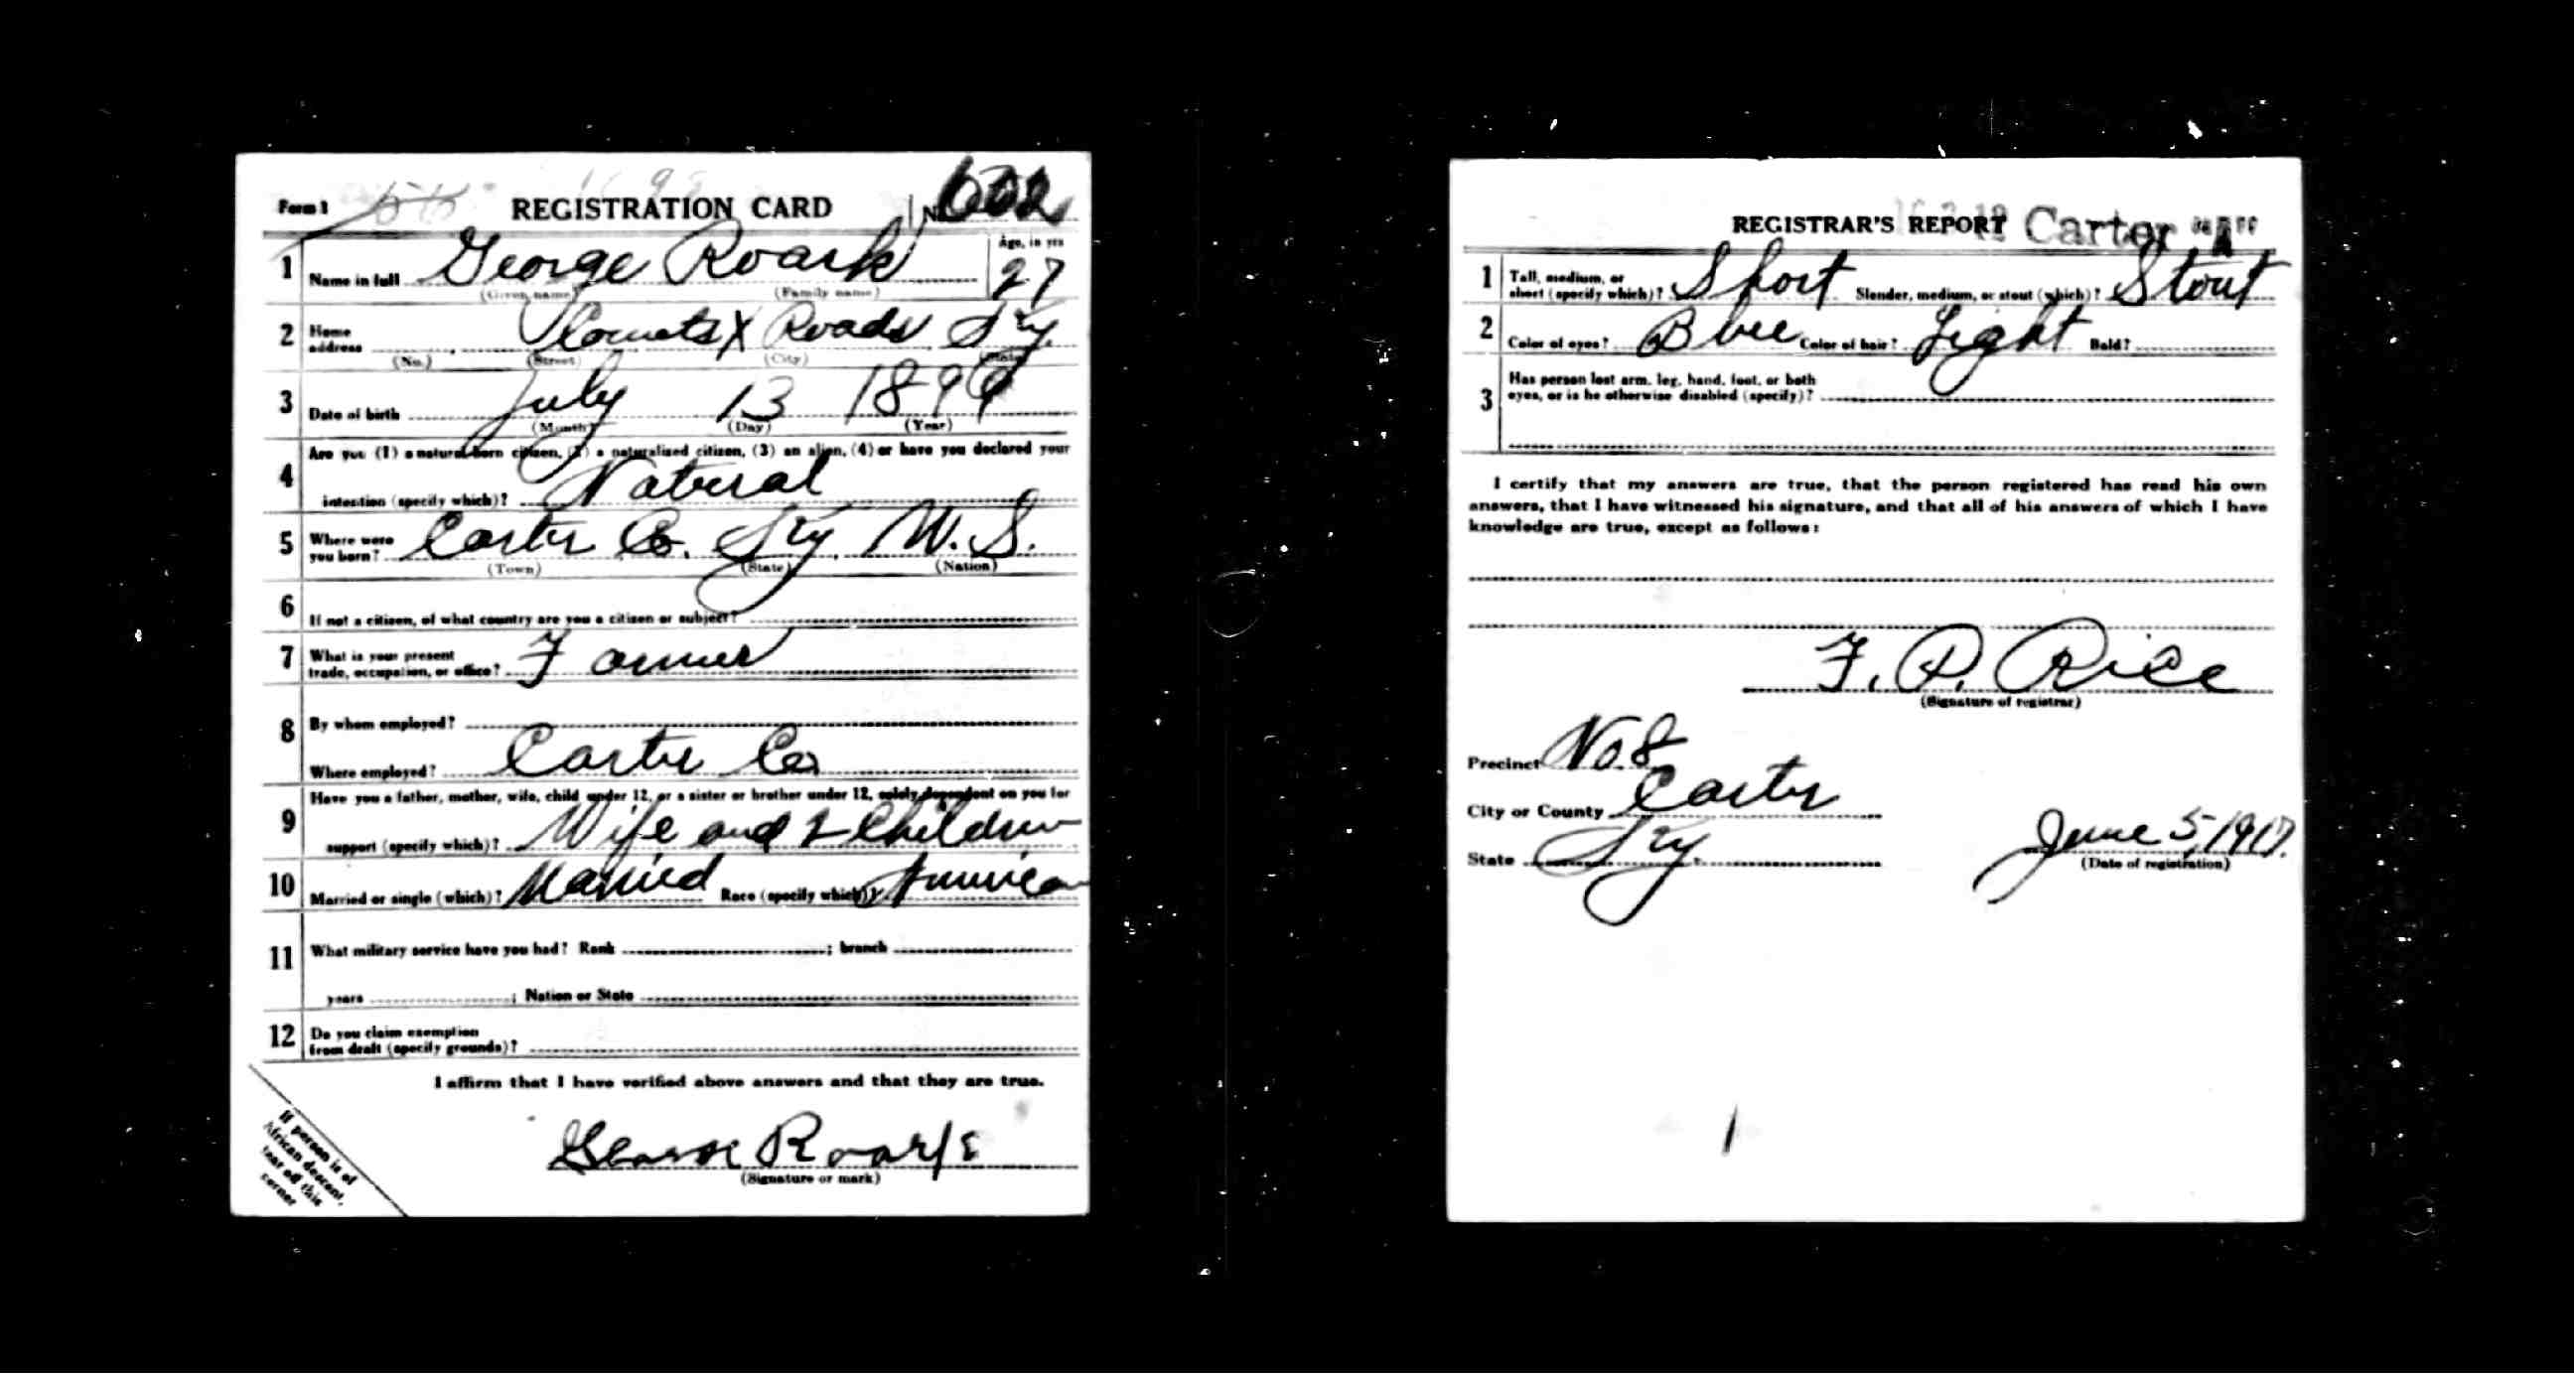 Form 1 REGISTRATION CARD No. 602
1 Name in full George Roark Age, in yrs 27
(Given name) (Family name)
2 Home address X Roads Ky.
(No.) (Street) (City) (State)
3 Date of birth July 13
(Month) (Day) (Year)
4 Are you (1) a natural-born citizen, (2) a naturalized citizen, (3) an alien, (4) or have you declared your
intention (specify which)? Natural
5 Where were you born? Carter Co. Ky. U. S.
(Town) (State) (Nation)
6 If not a citizen, of what country are you a citizen or subject?
7 What is your present trade, occupation, or office? Farmer
8 By whom employed?
Where employed? Carter Co
9 Have you a father, mother, wife, child under 12, or a sister or brother under 12, solely dependent on you for
support (specify which)? Wife and 2 Children
10 Married or single (which)? Married Race (specify which)? American
11 What military service have you had? Rank ; branch
years ; Nation or State
12 Do you claim exemption from draft (specify grounds)?
I affirm that I have verified above answers and that they are true.
George Roark
(Signature or mark)
If person is of
African descent,
tear off this
corner
REGISTRAR'S REPORT Carter
1 Tall, medium, or short (specify which)? Short Slender, medium, or stout (which)? Stout
2 Color of eyes? Blue Color of hair? Light Bald?
3 Has person lost arm, leg, hand, foot, or both
eyes, or is he otherwise disabled (specify)?
I certify that my answers are true, that the person registered has read his own
answers, that I have witnessed his signature, and that all of his answers of which I have
knowledge are true, except as follows:
F. P. Rice
(Signature of registrar)
Precinct No 8
City or County Carter
State Ky.
June 5, 1917.
(Date of registration)